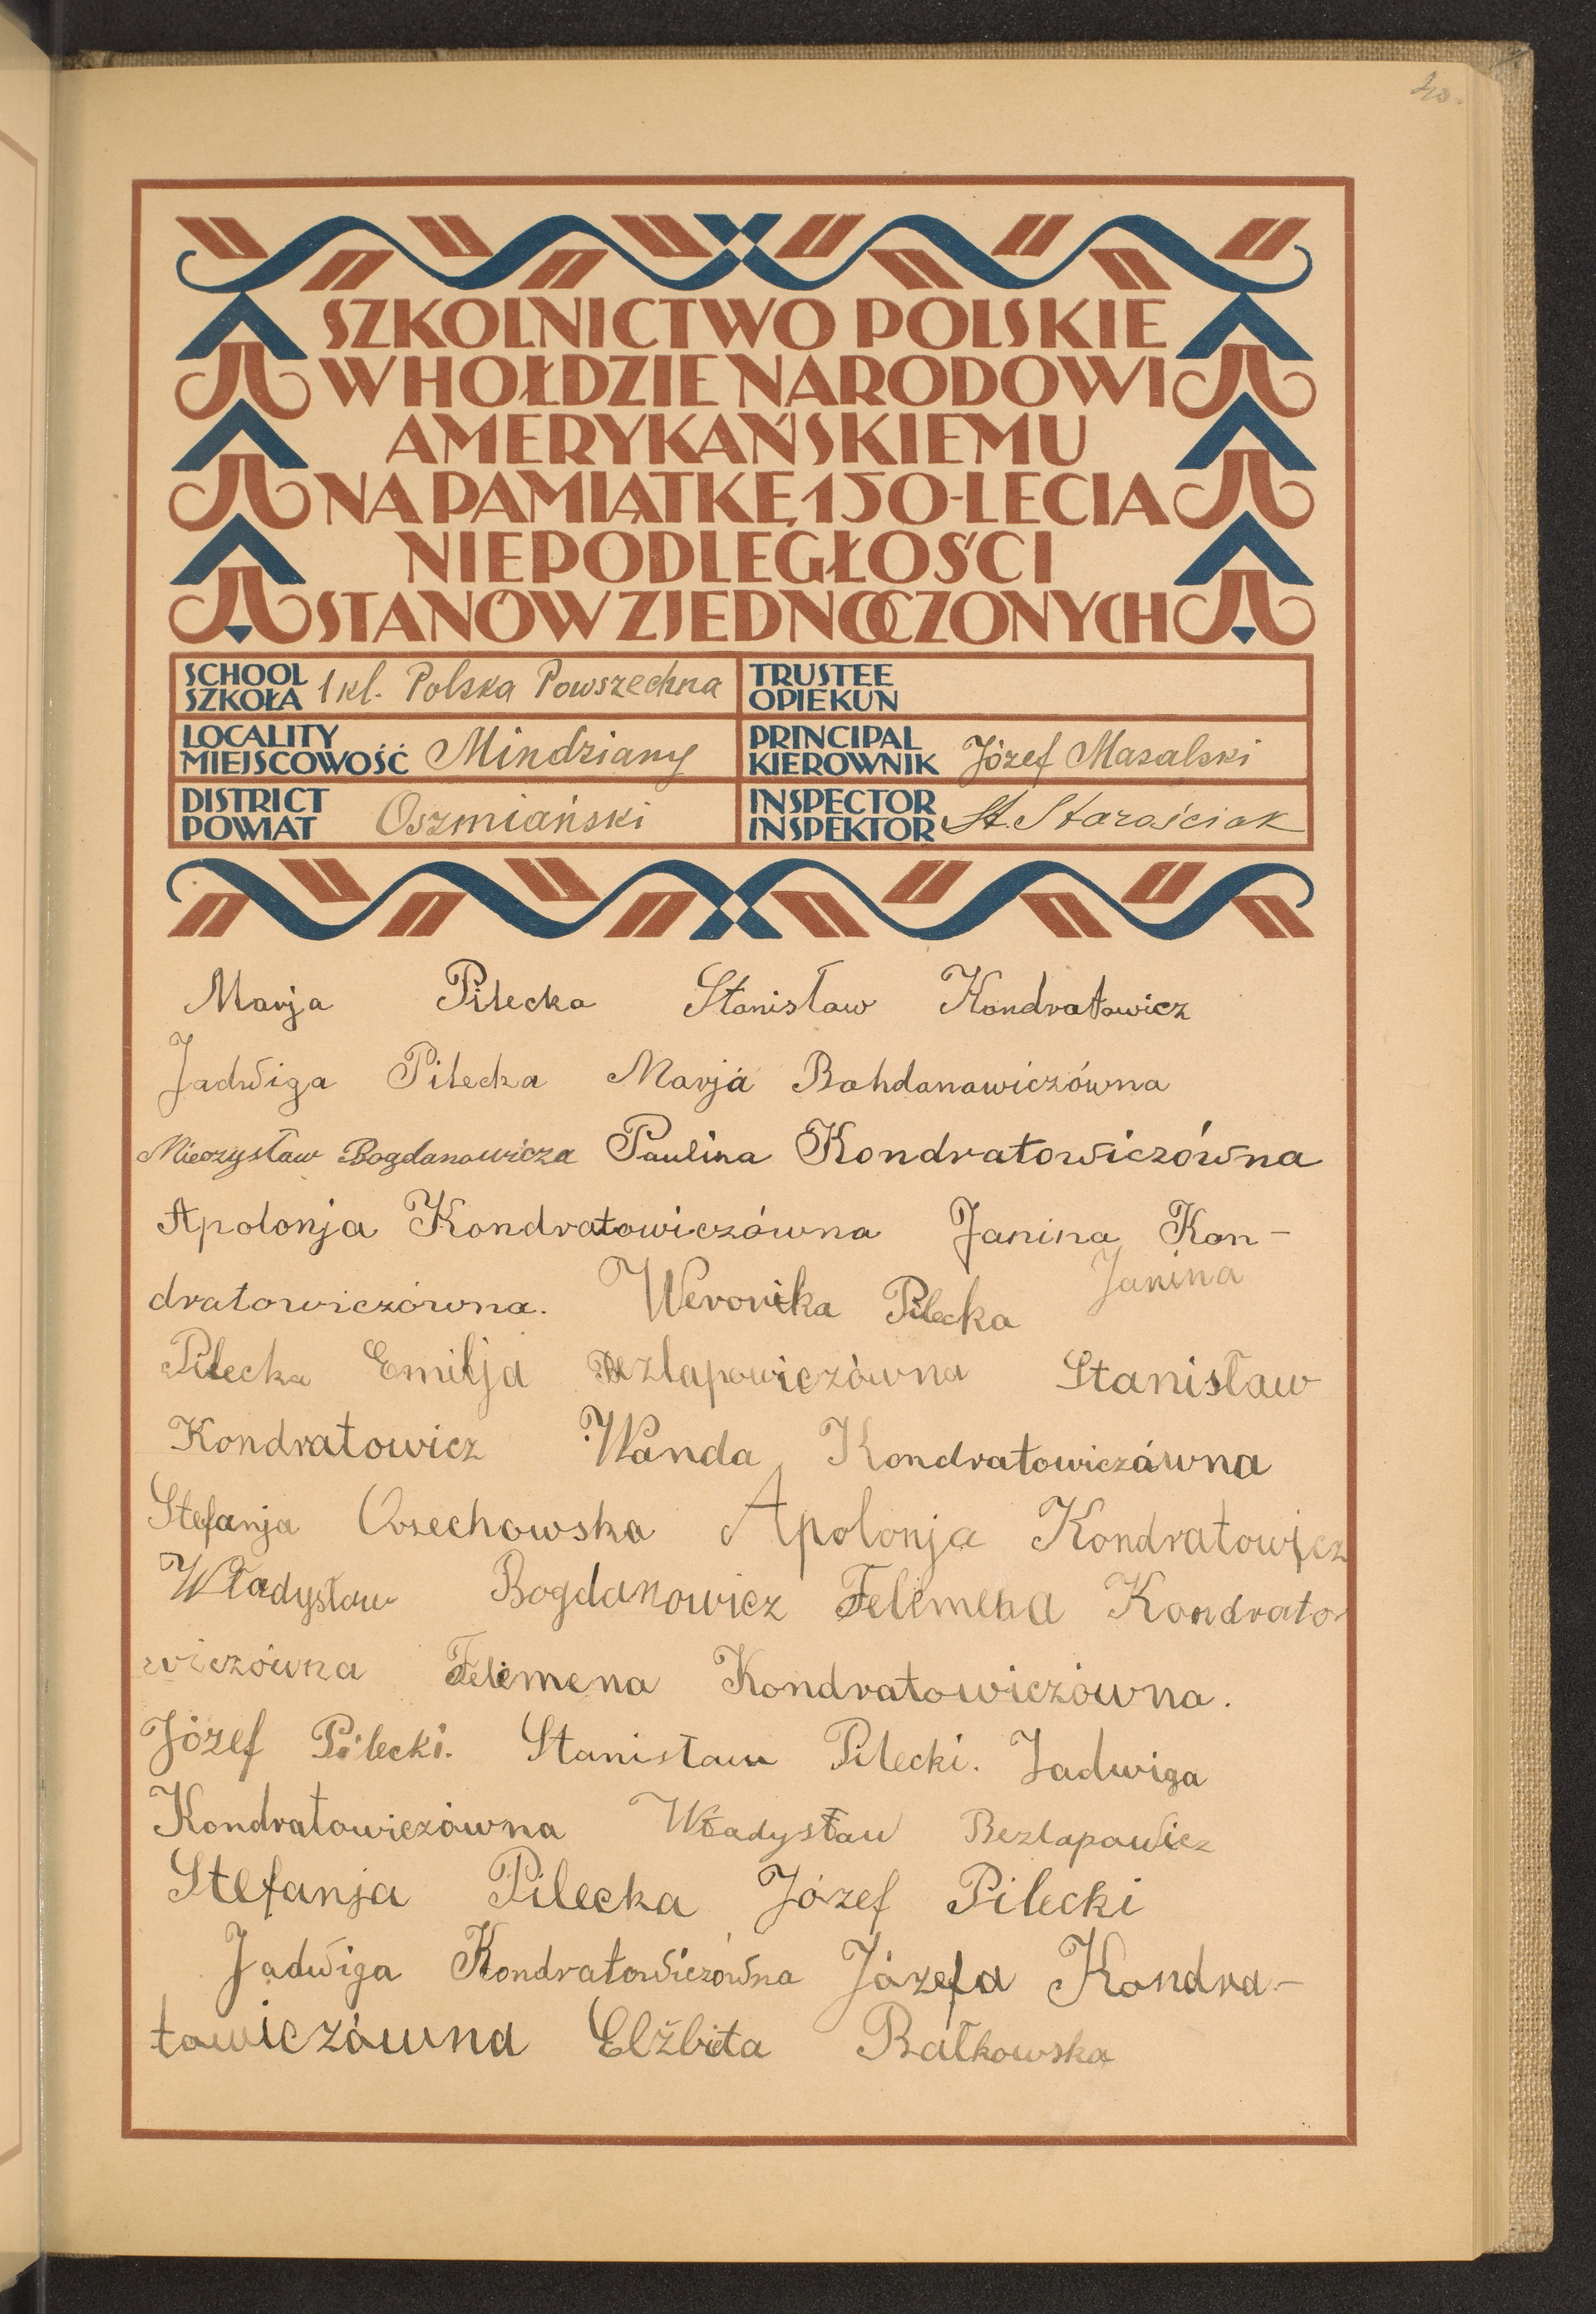 40.
SZKOLNICTWO POLSKIE
W HOŁDZIE NARODOWI
AMERYKAŃSKIEMU
NA PAMIĄTKĘ 150-LECIA
NIEPODLEGŁOŚCI
STANÓW ZJEDNOCZONYCH
SCHOOL
SZKOŁA 1 kl. Polska Powszechna
TRUSTEE
OPIEKUN
LOCALITY
MIEJSCOWOŚĆ Mindziany
PRINCIPAL
KIEROWNIK Józef Masalski
DISTRICT
POWIAT Oszmiański
INSPECTOR
INSPEKTOR St. Starościak
Marja Pilecka Stanisław Kondratowicz
Jadwiga Pilecka Marja Bohdanowiczówna
Mieczysław Bogdanowicza Paulina Kondratowiczówna
Apolonja Kondratowiczówna Janina Kon-
dratowiczówna. Weronika Pilecka Janina
Pilecka Emilja Bezlapowiczówna Stanisław
Kondratowicz Wanda Kondratowiczáwna
Stefanja Orzechowska Apolonja Kondratowicz
Władysław Bogdanowicz Felemena Kondrato-
wiczówna Felemena Kondratowiczówna.
Józef Pilecki. Stanisław Pilecki. Jadwiga
Kondratowiczówna Władysław Bezlapowicz
Stefanja Pilecka Józef Pilecki
Jadwiga Kondratowiczówna Józefa Kondra-
towiczówna Elżbieta Bałkowska